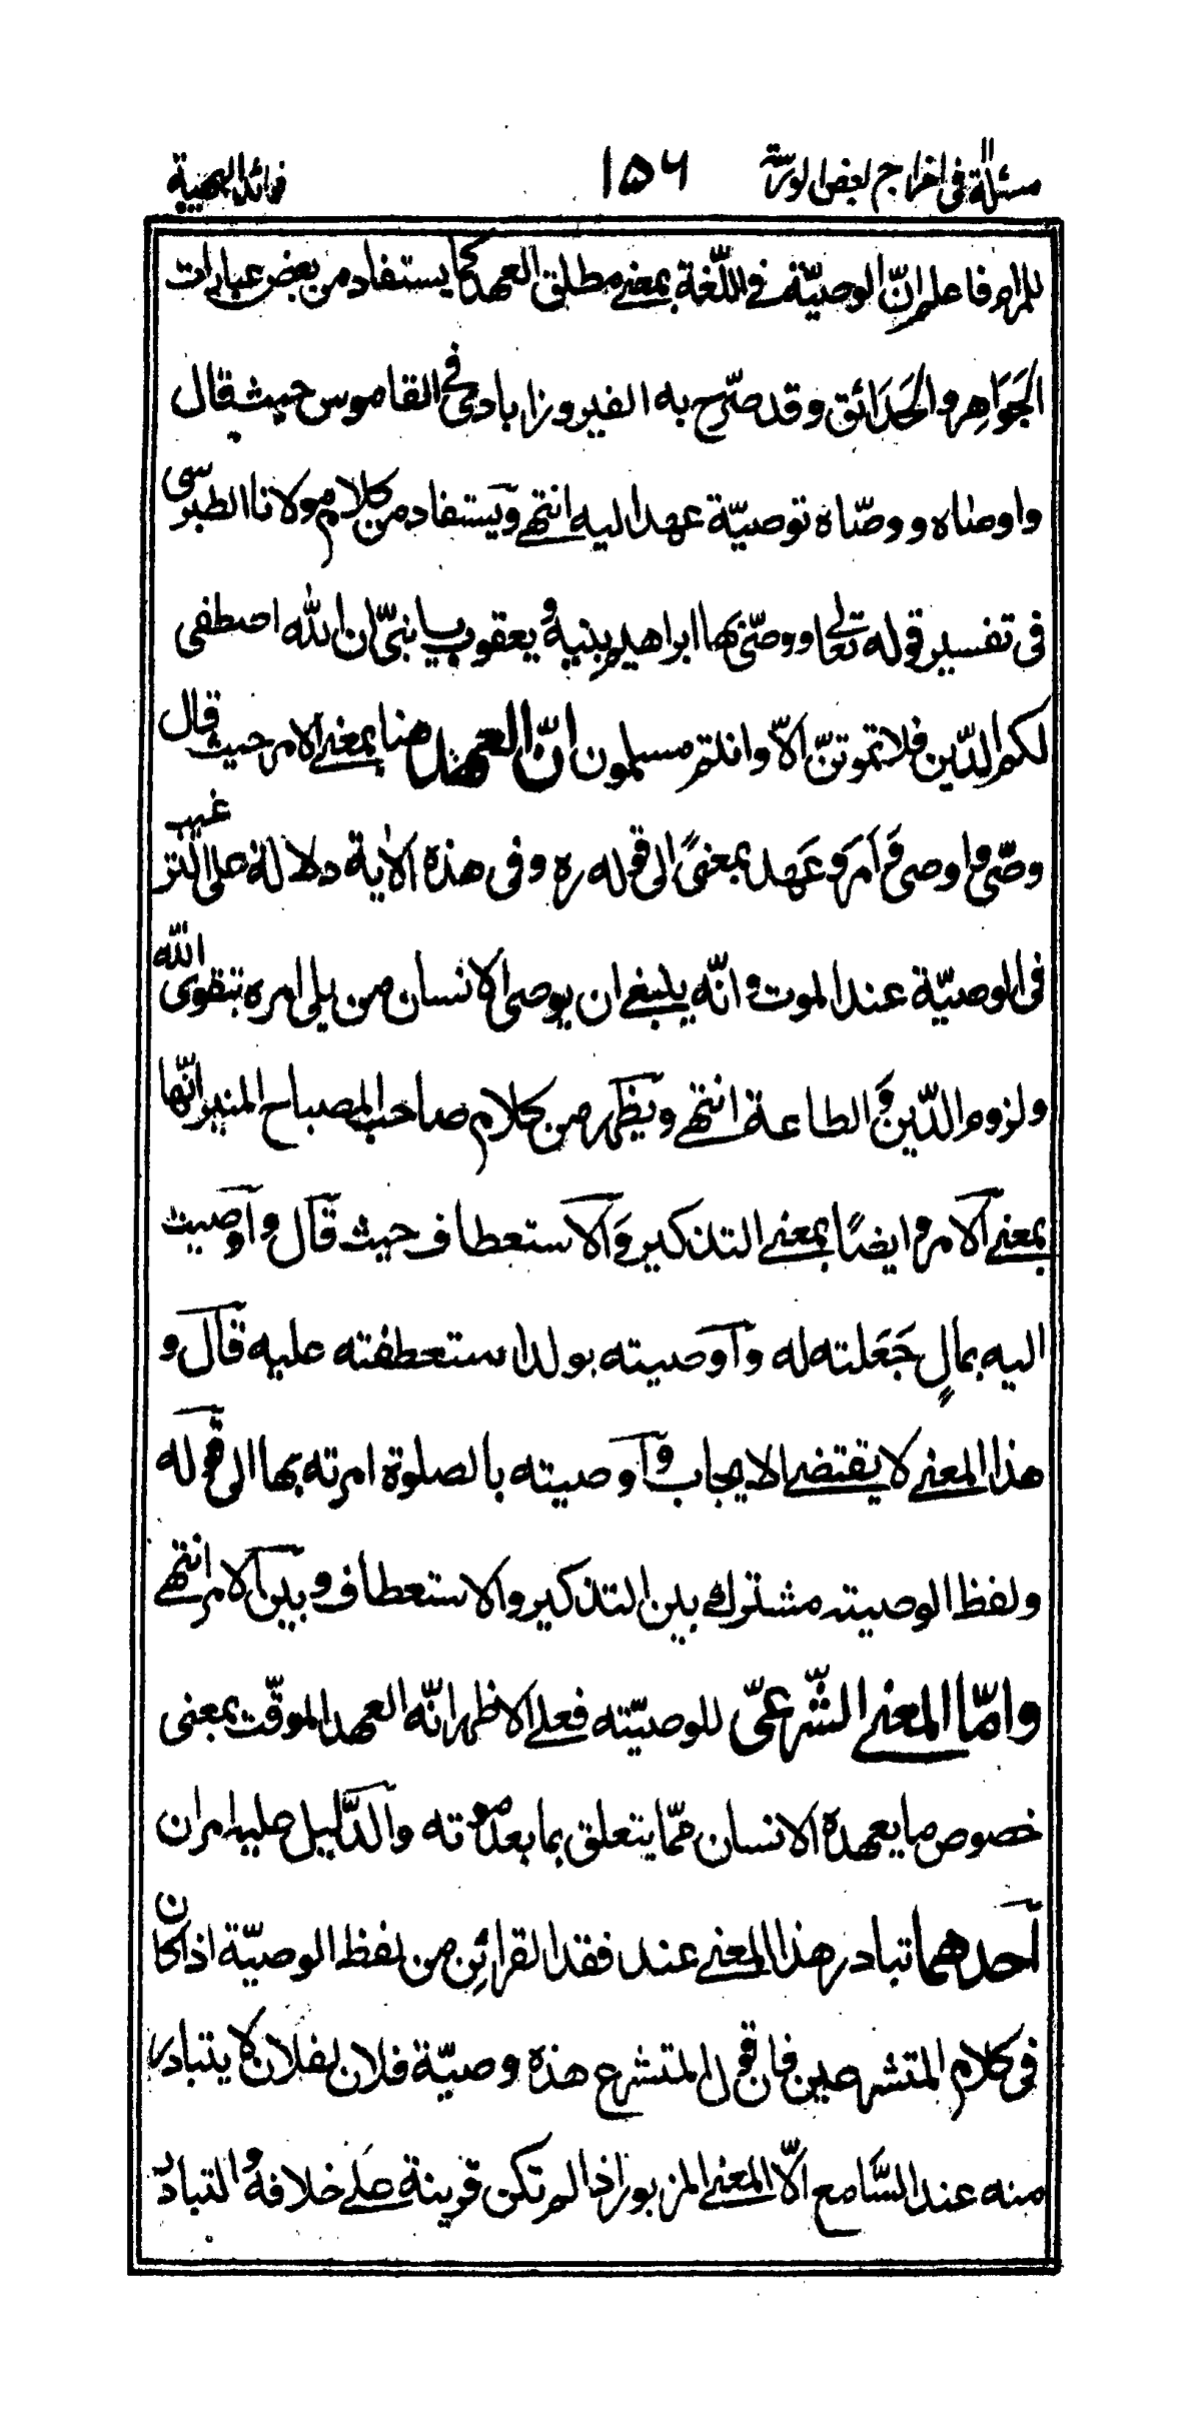 مسئلة فى اخراج بعض الورثة ۱۵۶ فوائد البهية
للمرام فاعلم انّ الوصيّة فى اللّغة بمعنى مطلق العهد كما يستفاد من بعض عبارات
الجَوَاهِر والحَدَائق وقد صرّح به الفيروزابادى فى القاموس حيث قال
واوصاه ووصّاه توصيّة عهد اليه انتهى ويستفاد من كلام مولانا الطبرسى
فى تفسير قوله تعالى ووصّى بها ابراهيم بنيه ويعقوب يا بنىّ ان الله اصطفى
لكم الدّين فلا تموتنّ الّا وانتم مسلمون انّ العهد هنا بمعنى الامر حيث قال
وصّى واوصى وَ اَمَرَ وعَهِد بمعنىً الى قوله ره وفى هذه الاٰية دلالة على الترغيب
فى الوصيّة عند الموت وانّه ينبغى ان يوصى الانسان من يلى امره بتقوى الله
ولزوم الدّين وَ الطاعة انتهى ويظهر من كلام صاحب المصباح المنير انّها
بمعنى الامر وايضًا بمعنى التذكير وَالاستعطاف حيث قال واوصيت
اليه بمالٍ جَعَلته له واوصيته بولده استعطفته عليه قال و
هذا المعنى لا يقتضى الايجاب واوصيته بالصلوة امرته بها الى قوله
ولفظ الوصيته مشترك بين التذكير والاستعطاف وبين الامر انتهى
وامّا المعنى الشّرعىّ للوصيّته فعلى الاظهر انّه العهد الموقّت بمعنى
خصوص ما يعهده الانسان ممّا يتعلق بما بعد موته والدَّليل عليه امران
احدهما تبادر هذا المعنى عند فقد القرائِن من لفظ الوصيّة اذا كان
فى كلام المتشرعين فان قول المتشرع هذه وصيّة فلان لفلان لا يتبادر
منه عند السَّامع الّا المعنى المزبور اذا لم تكن قرينة على خلافه والتبادر